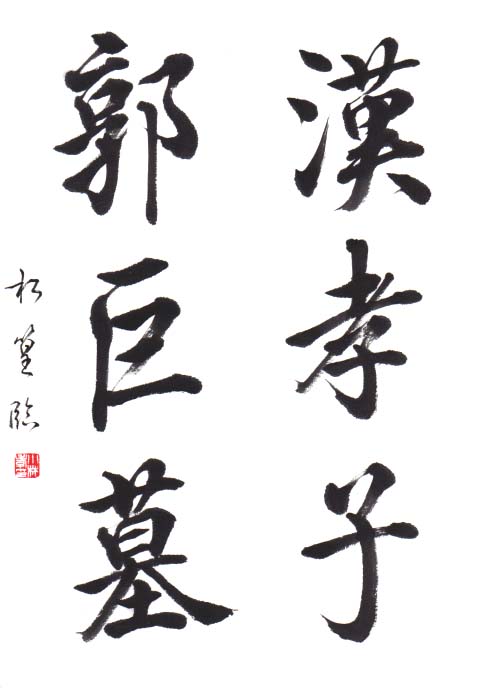 漢孝子
郭巨墓
松篁臨